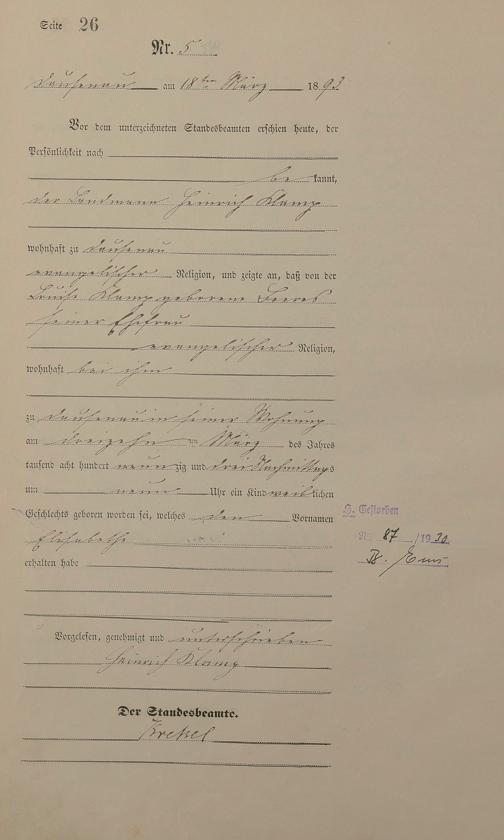 Seite 26
Nr. 5
Dausenau am 18ten März 1893
Vor dem unterzeichneten Standesbeamten erschien heute, der
Persönlichkeit nach
be kannt,
der Landmann Heinrich Klamp
wohnhaft zu Dausenau
evangelischer Religion, und zeigte an, daß von der
Louise Klamp geborene
seiner Ehefrau
evangelischer Religion,
wohnhaft bei ihm
zu Dausenau in seiner Wohnung
am dreizehn ten März des Jahres
tausend acht hundert neun zig und drei Nachmittags
um neun Uhr ein Kind weib lichen
Geschlechts geboren worden sei, welches den Vornamen
Elisabethe
erhalten habe
Vorgelesen, genehmigt und unterschrieben
Heinrich Klamp
Der Standesbeamte.
G. Gestorben
Nr. 87 /1930
B. Ems